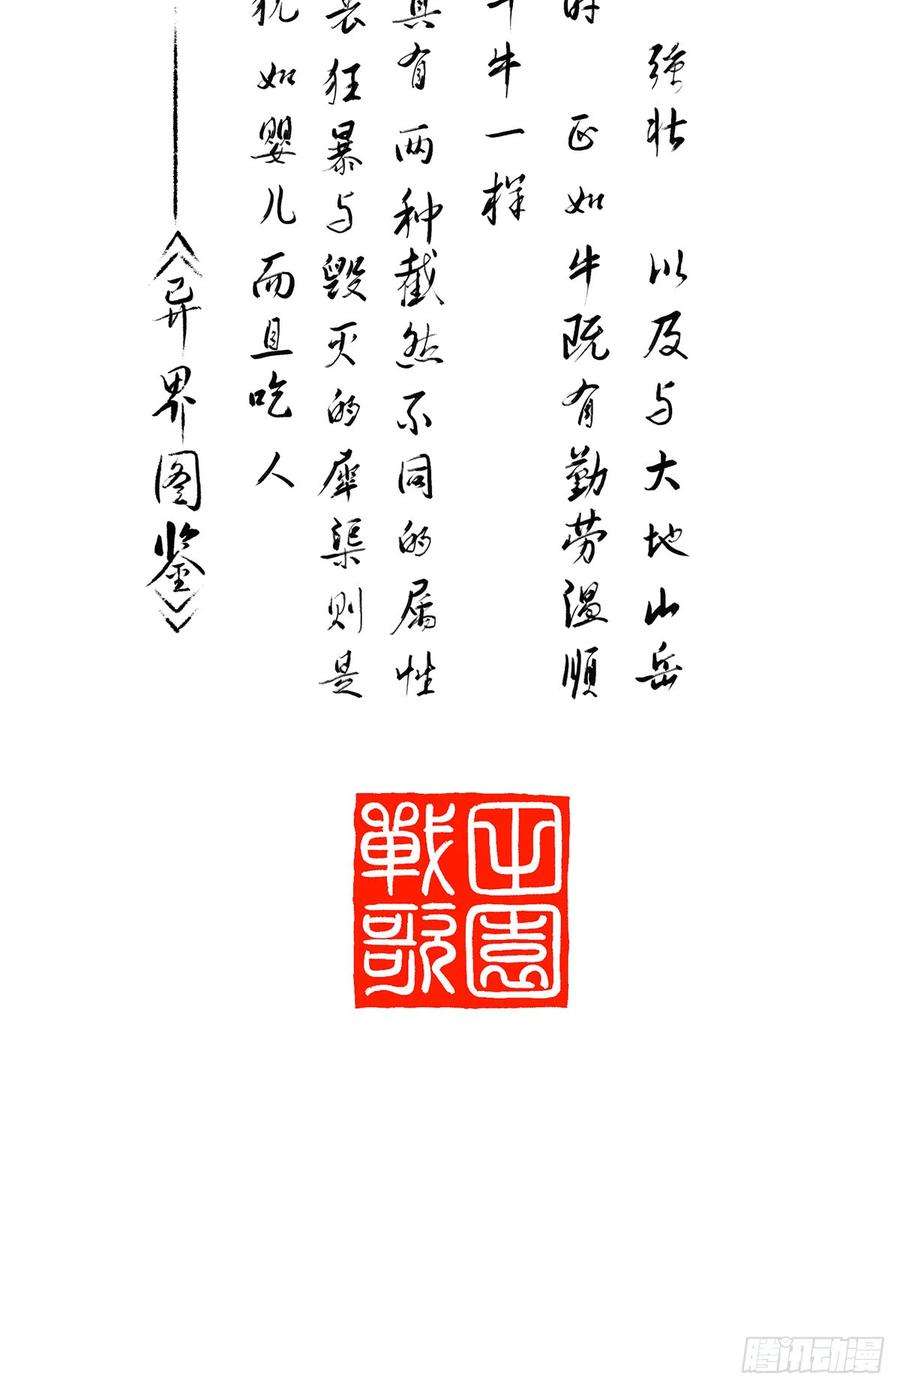 强壮 以及与大地山岳
时 正如牛既有勤劳温顺
牛一样
具有两种截然不同的属性
狂暴与毁灭的犀渠则是
犹如婴儿而且吃人
——《异界图鉴》
战歌
腾讯动漫